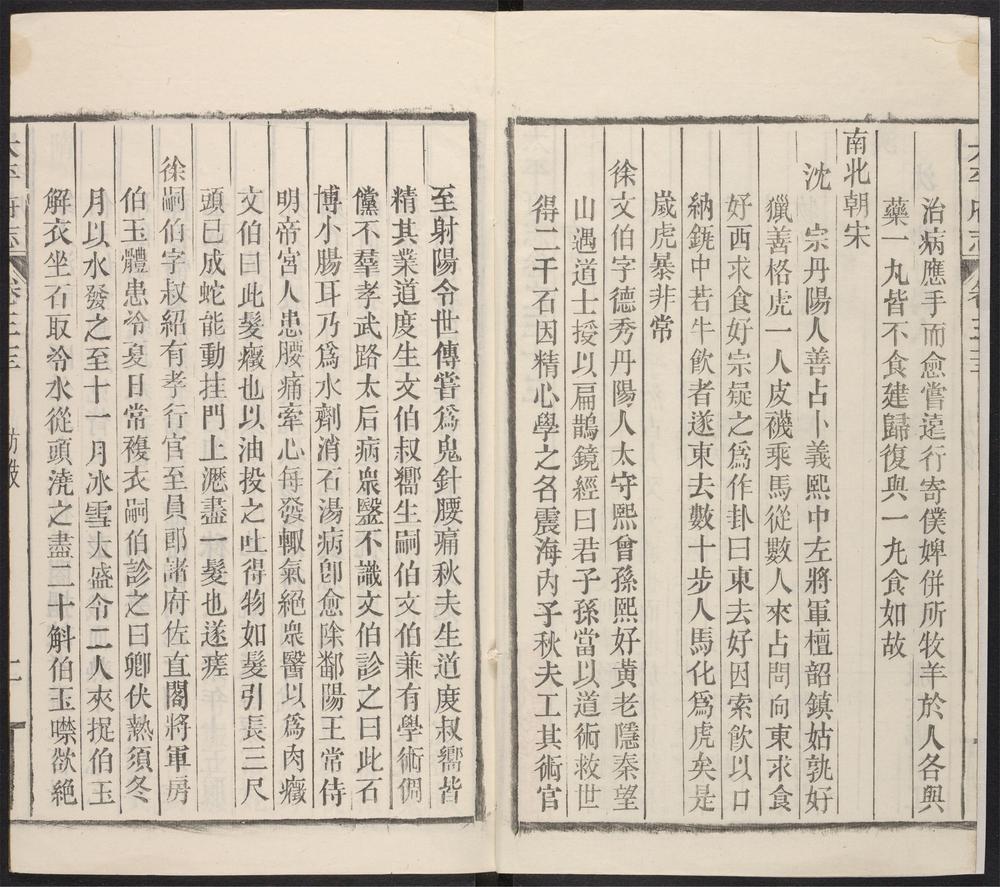 治病應手而愈嘗遠行寄僕婢併所牧羊於人各與
藥一丸皆不食建歸復與一丸食如故
南北朝宋
沈　宗丹陽人善占卜義熙中左將軍檀韶鎮姑孰好
獵善格虎一人皮襪乘馬從數人來占問向東求食
好西求食好宗疑之爲作卦曰東去好因索飲以口
納銚中若牛飲者遂東去數十步人馬化爲虎矣是
歲虎暴非常
徐文伯字德秀丹陽人太守熙曾孫熙好黃老隱秦望
山遇道士授以扁鵲鏡經曰君子孫當以道術救世
得二千石因精心學之名震海內子秋夫工其術官
至射陽令世傳嘗爲鬼針腰痛秋夫生道度叔嚮皆
精其業道度生文伯叔嚮生嗣伯文伯兼有學術倜
儻不羣孝武路太后病衆醫不識文伯診之曰此石
博小腸耳乃爲水劑消石湯病卽愈除鄱陽王常侍
明帝宮人患腰痛牽心每發輒氣絕衆醫以爲肉癥
文伯曰此髮癥也以油投之吐得物如髮引長三尺
頭已成蛇能動挂門上瀝盡一髮也遂瘥
徐嗣伯字叔紹有孝行官至員郎諸府佐直閣將軍房
伯玉體患冷夏日常複衣嗣伯診之曰卿伏熱須冬
月以水發之至十一月冰雪大盛令二人夾捉伯玉
解衣坐石取冷水從頭澆之盡二十斛伯玉噤欲絕
太平府志　卷三　　二